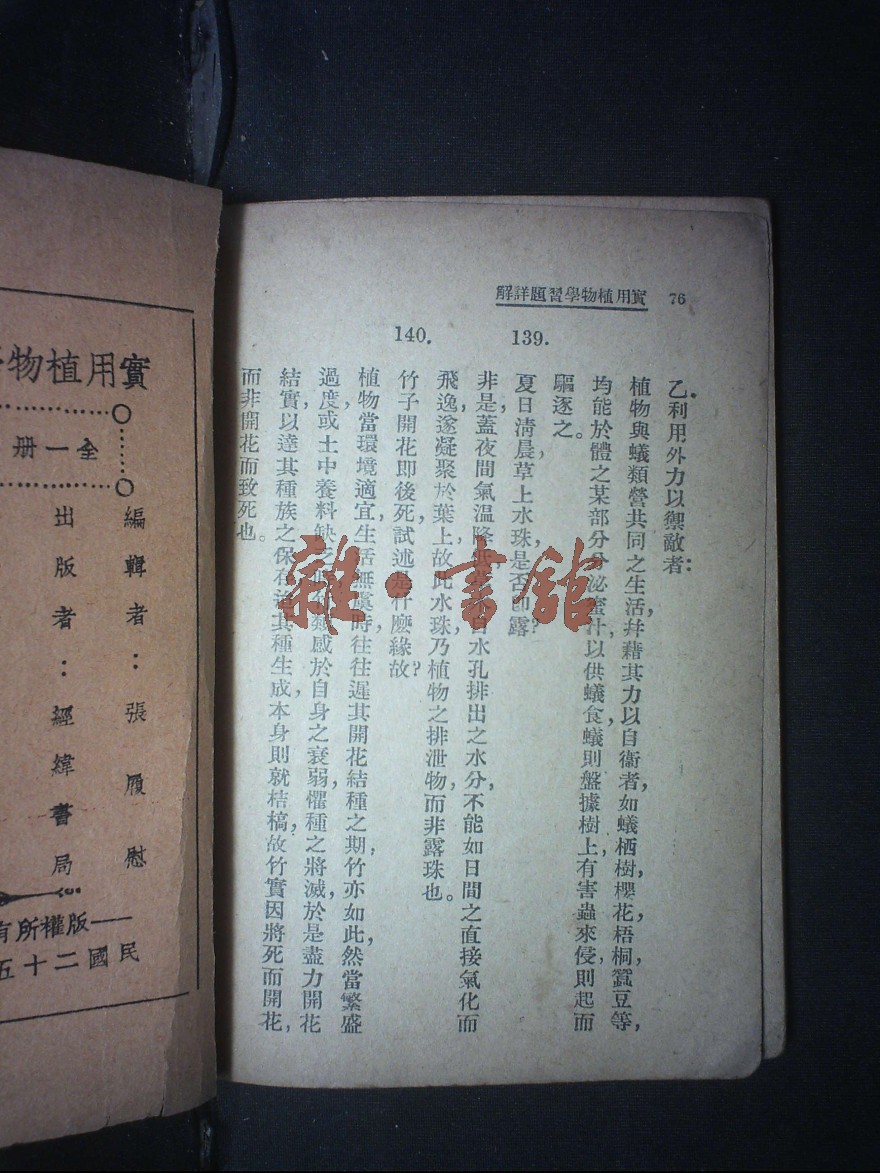 實用植物學習題詳解 76
乙.利用外力以禦敵者:
植物與蟻類營共同之生活,幷藉其力以自衞者,如蟻栖樹,櫻花,梧桐,蠶豆等,
均能於體之某部分分泌蜜汁,以供蟻食,蟻則盤據樹上,有害蟲來侵,則起而
驅逐之。
139.
夏日淸晨,草上水珠,是否卽露?
非是,蓋夜間氣温降低,自水孔排出之水分,不能如日間之直接氣化而
飛逸,遂凝聚於葉上,故此水珠乃植物之排泄物,而非露珠也。
140.
竹子開花卽後死,試述是什麽緣故?
植物當環境適宜,生活無虞時,往往遲其開花結種之期,竹亦如此,然當繁盛
過度,或土中養料缺乏,感於自身之衰弱,懼種之將滅,於是盡力開花
結實,以達其種族之保存,其種生成,本身則就枯槁,故竹實因將死而開花,
而非開花而致死也。
雜·書館
實用植物
全一册
編輯者:張履慰
出版者:經緯書局
版權所有
民國二十五